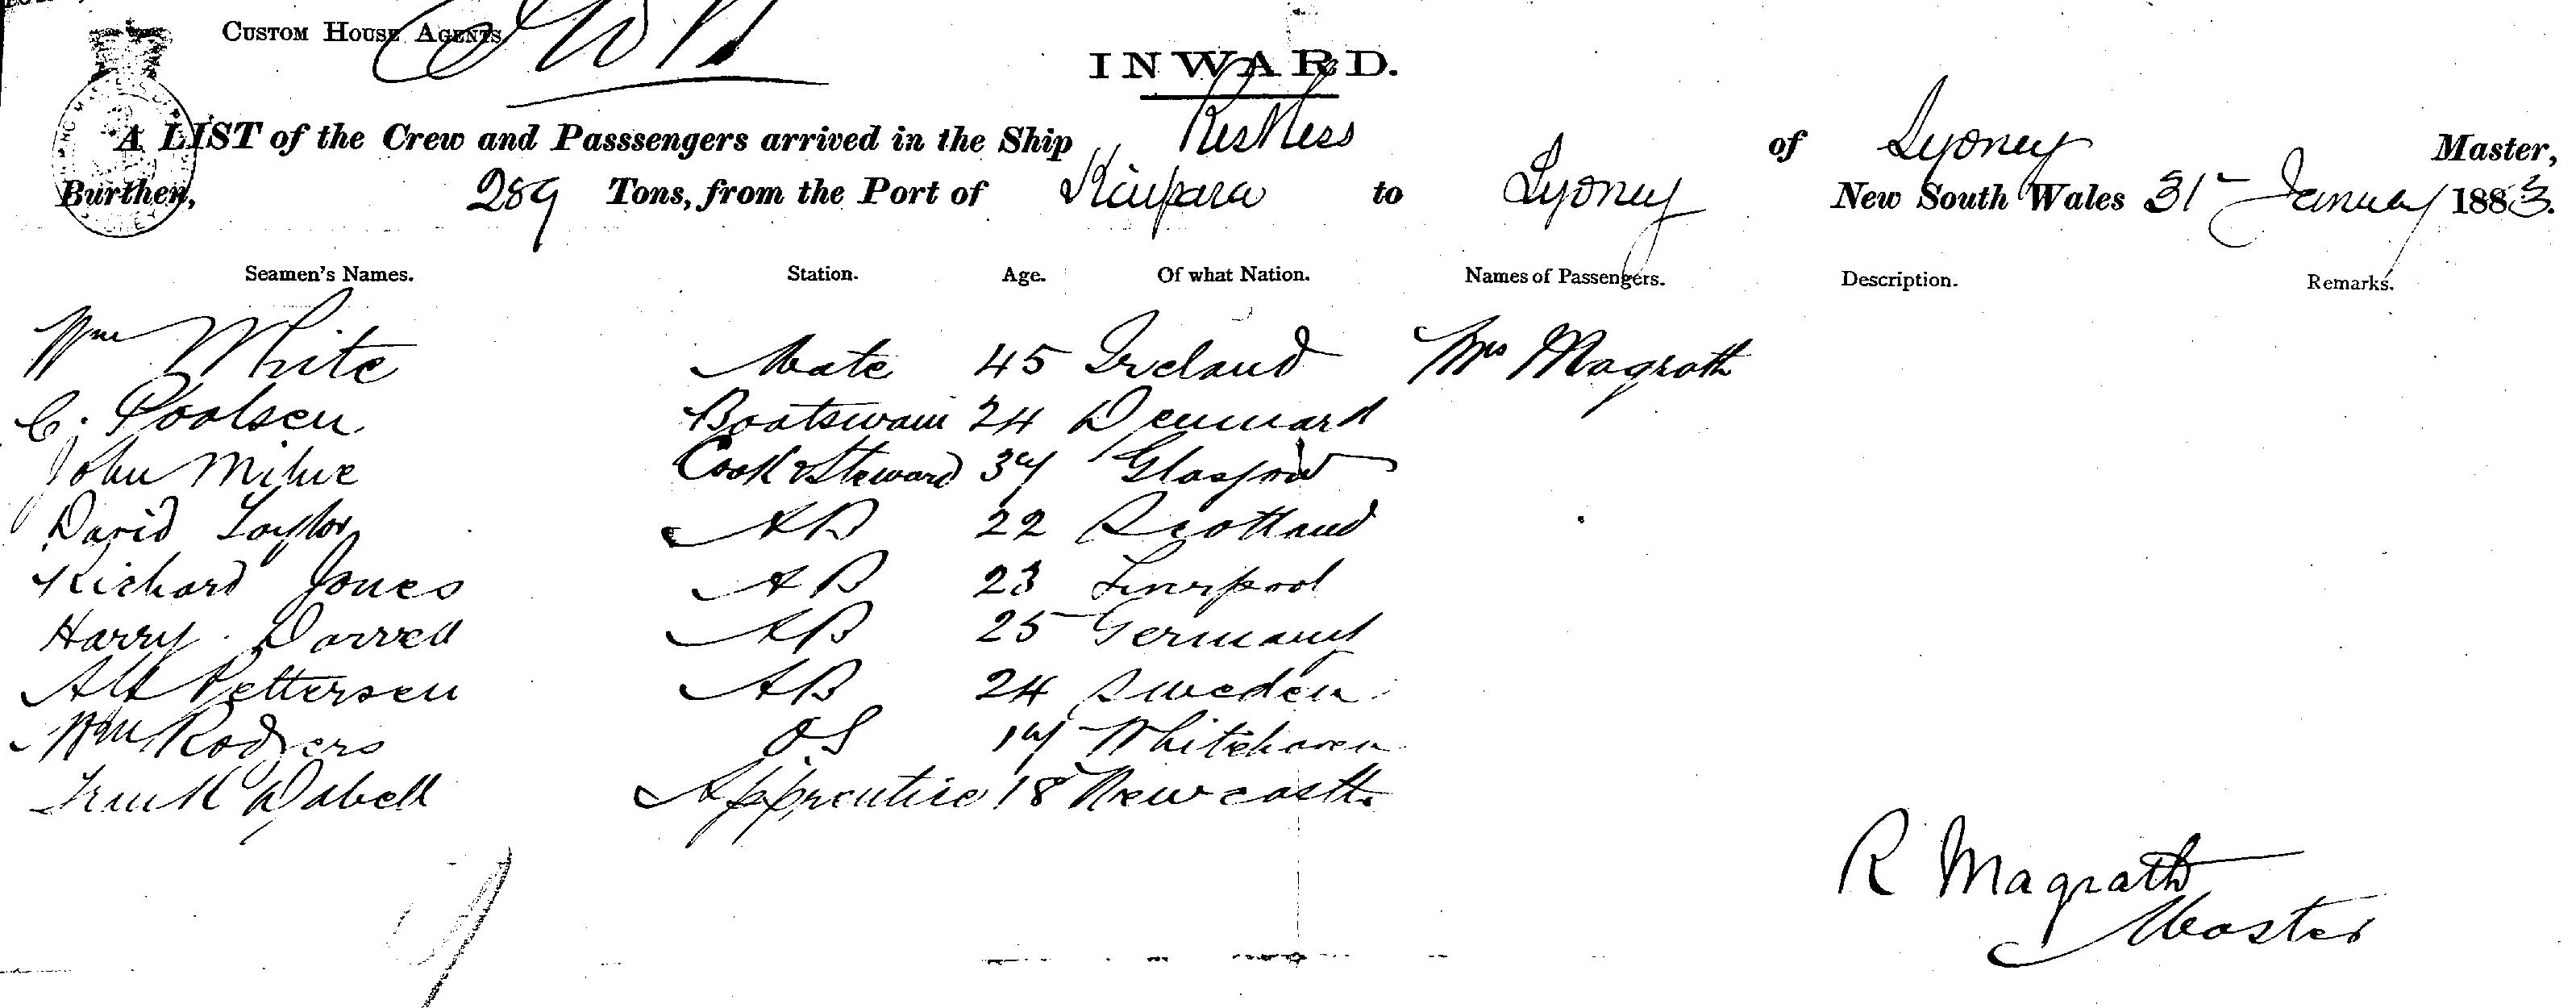 CUSTOM HOUSE AGENTS
INWARD.
A LIST of the Crew and Passsengers arrived in the Ship Restless of Sydney Master,
Burthen, 289 Tons, from the Port of Kaipara to Sydney New South Wales 31st January 1883.
Seamen's Names. Station. Age. Of what Nation. Names of Passengers. Description. Remarks.
Wm White Mate 45 Ireland Mrs Magrath
C. Poolsen Boatswain 24 Denmark
John Milne Cook & Steward 37 Glasgow
David Taylor AB 22 Scotland
Richard Jones AB 23 Liverpool
Harry Dorrell AB 25 Germany
Alf Pettersen AB 24 Sweden
Wm Rodgers OS 17 Whitehaven
Frank Dabell Apprentice 18 Newcastle
R Magrath
Master